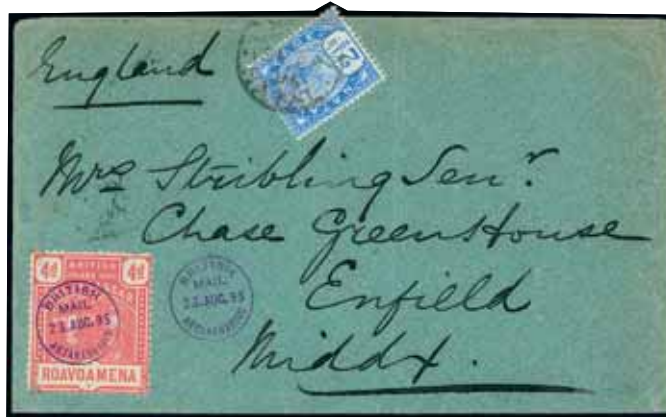 England
2½
Mrs Stribling Senr.
Chase Green House
Enfield
Middx.
4d BRITISH 4d
BRITISH
MAIL
23.AUG.95
ANTANANARIVO
ROAVOAMENA
BRITISH
MAIL
23.AUG.95
ANTANANARIVO